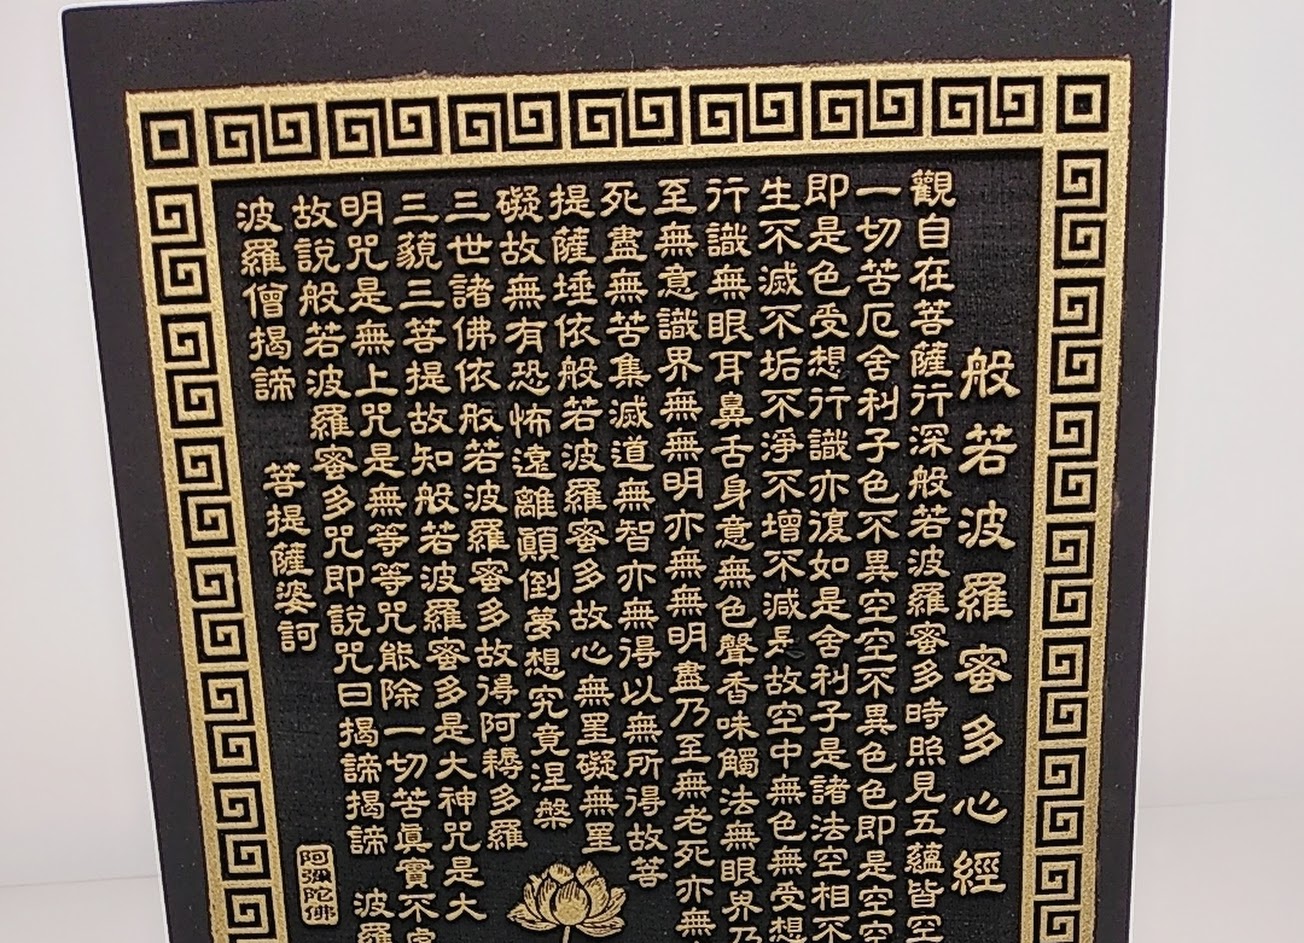 般若波羅蜜多心經
觀自在菩薩行深般若波羅蜜多時照見五蘊皆空
一切苦厄舍利子色不異空空不異色色即是空空
即是色受想行識亦復如是舍利子是諸法空相不
生不滅不垢不淨不增不減是故空中無色無受想
行識無眼耳鼻舌身意無色聲香味觸法無眼界乃
至無意識界無無明亦無無明盡乃至無老死亦無
死盡無苦集滅道無智亦無得以無所得故菩
提薩埵依般若波羅蜜多故心無罣礙無罣
礙故無有恐怖遠離顛倒夢想究竟涅槃
三世諸佛依般若波羅蜜多故得阿耨多羅
三藐三菩提故知般若波羅蜜多是大神咒是大
明咒是無上咒是無等等咒能除一切苦眞實不虛
故說般若波羅蜜多咒即說咒曰揭諦揭諦 波羅
波羅僧揭諦 菩提薩婆訶
阿彌陀佛